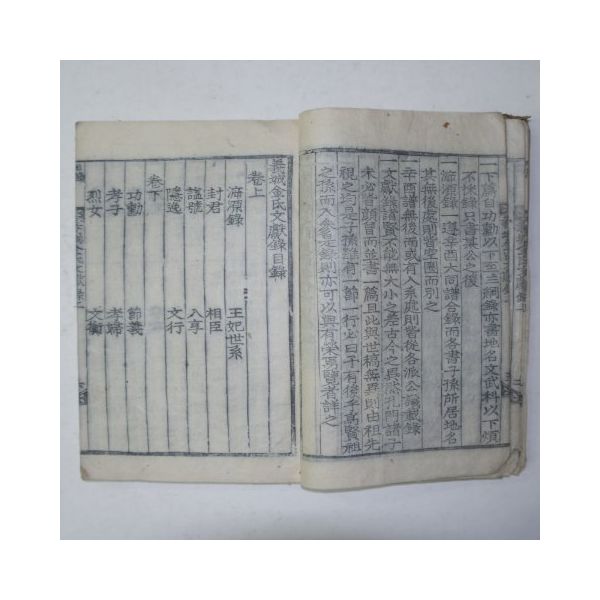 一下篇自功勳以下至三綱錄亦書地名文武科以下煩
不採錄只書某公之後
一濬源錄一遵辛酉大同譜合錄而各書子孫所居地名
其無後處則皆空圈而別之
一辛酉譜無後而或有入系處則皆從各派公議載錄
一文獻錄諸賢不能無大小之差古今之異然孔門諸子
未必皆顏曾而並書一篇且此與世稿無異則由祖先
視之均是子孫誰有一節一行出曰予有後乎高賢祖
之孫而入參是錄則亦可以與有榮焉覽者詳之
義城金氏文獻錄目錄
卷上
濬源錄 王妃世系
封君 相臣
謚號 入享
隱逸 文行
卷下
功勳 節義
孝子 孝婦
烈女 文衡